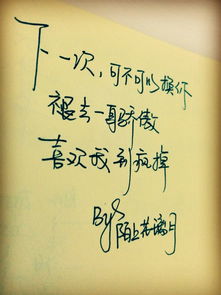 下一次，可不可以换你
褪去一身骄傲
喜欢我到疯掉
By 陌上苏漓月